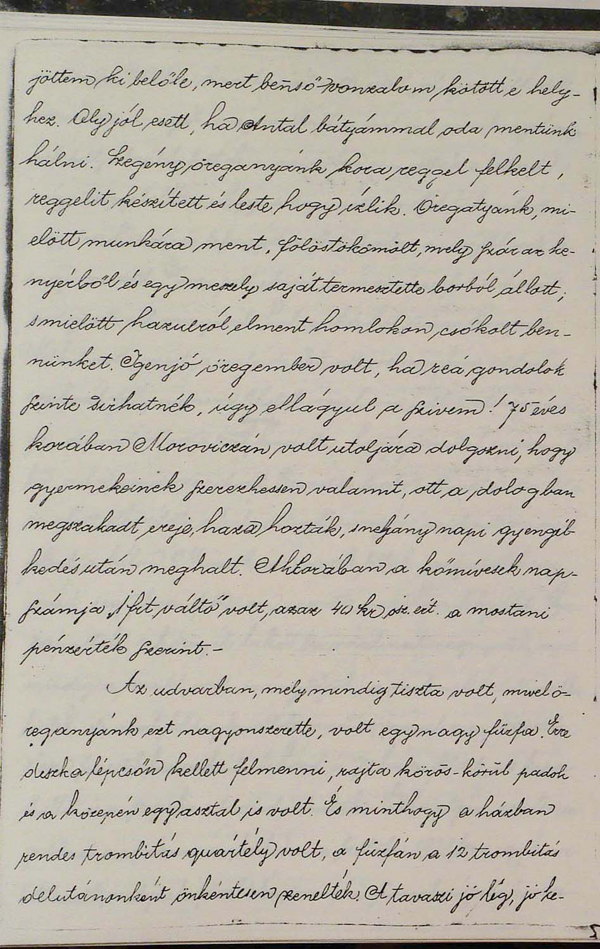 jöttem ki belőle, mert benső vonzalom kötött e hely-
hez. Oly jól esett, ha Antal bátyámmal oda mentünk
hálni. Szegény öreganyánk kora reggel felkelt,
reggelit készített és leste, hogy izlik. Öregatyánk, mi-
előtt munkára ment, fölöstökömölt, mely piár az ke-
nyérből és egy meszely saját termesztette borból állott;
s mielött hazulról elment homlokon csókolt ben-
nünket. Igen jó öregember volt, ha reá gondolok
szinte sirhatnék, úgy ellágyul a szivem! 75 éves
korában Moroviczán volt utoljára dolgozni, hogy
gyermekeinek szerezhessen valamit, ott a dologban
megszakadt ereje, haza hozták, s néhány napi gyengél-
kedés után meghalt. Akkorában a kőmívesek nap-
számja „1 frt váltó" volt, azaz 40 kr ősz. ért. a mostani
pénzérték szerint.-
Az udvarban, mely mindig tiszta volt, mivel ö-
reganyánk ezt nagyon szerette, volt egy nagy fűzfa. Erre
deszka lépcsőn kellett felmenni, rajta körös-körül padok
és a közepén egy asztal is volt. És minthogy a házban
rendes trombitás quártély volt, a fűzfán a 12 trombitás
delutánonként önkéntesen zenelték. A tavaszi jó lég, jó ke-
5